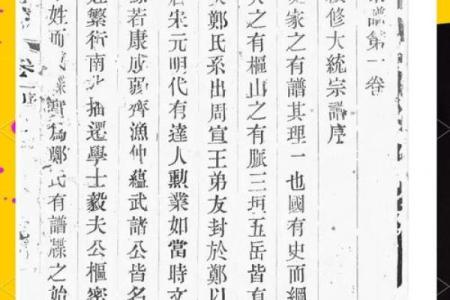 譜第一卷
修大統宗譜序
家之有譜其理一也國有史而綱
之有樞山之有脈三垣五岳皆有
鄭氏系出周宣王弟友封於鄭以
宋元明代有達人勳業如當時文
若康成弱齊漁仲蘊武諸公皆名
繁衍南北抽選學士毅夫公樞密
姓而牒實為鄭氏有譜牒之始
卷序